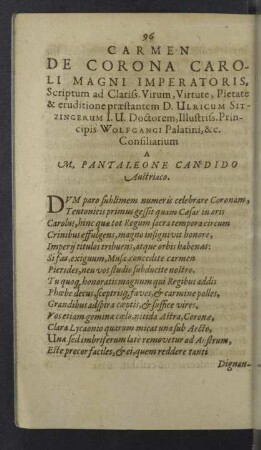 96
CARMEN
DE CORONA CARO-
LI MAGNI IMPERATORIS,
Scriptum ad Clariss. Virum, Virtute, Pietate
& eruditione præstantem D. ULRICUM SIT-
ZINGERUM I. U. Doctorem, Illustriss. Prin-
cipis WOLFGANGI Palatini, &c.
Consiliarium
A
M. PANTALEONE CANDIDO
Austriaco.
DVM paro sublimem numeris celebrare Coronam,
Teutonicis primus gessit quam Cæsar in oris
Carolus, hinc quæ tot Regum sacra tempora circum
Crinibus effulgens, magno insignivit honore,
Imperij titulos tribuens, atque orbis habenas:
Si fas, exiguum, Musæ concedite carmen
Pierides, neu vos studio subducite nostro.
Tu quoq́, honoratis magnum qui Regibus addis
Phœbe decus, sceptrisq́, faves, & carmine polles,
Grandibus adspira cœptis, & suffice vires,
Vos etiam gemina cœlo nitida Astra, Coronæ,
Clara Lycaonio quarum micat una sub Arcto,
Una sed imbriferum late removetur ad Austrum,
Este precor faciles, & ei, quem reddere tanti
Dignan-